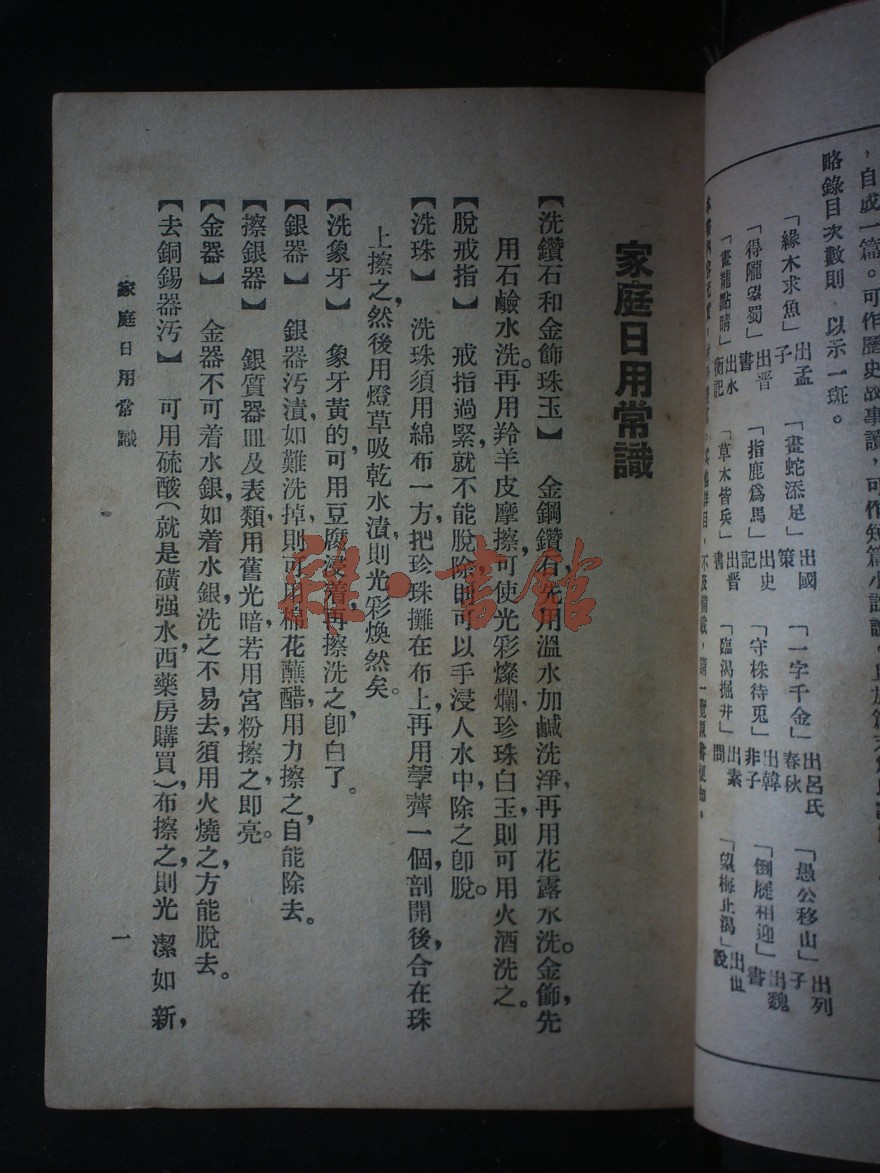 ，自成一篇。可作歷史故事讀，可作短篇小說讀。
略錄目次數則，以示一斑。
「緣木求魚」出孟子　「畫蛇添足」出國策　「一字千金」出呂氏春秋　「愚公移山」出列子
「得隴望蜀」出晋書　「指鹿爲馬」出史記　「守株待兎」出韓非子　「倒屣相迎」出魏書
「畫龍點睛」出水衡記　「草木皆兵」出晋書　「臨渴掘井」出素問　「望梅止渴」出世說
家庭日用常識
【洗鑽石和金飾珠玉】　金鋼鑽石，先用溫水加鹹洗淨，再用花露水洗。金飾，先
用石鹼水洗。再用羚羊皮摩擦，可使光彩燦爛，珍珠白玉，則可用火酒洗之。
【脫戒指】　戒指過緊，就不能脫除，則可以手浸人水中，除之卽脫。
【洗珠】　洗珠須用綿布一方，把珍珠攤在布上，再用荸薺一個剖開後，合在珠
上擦之，然後用燈草吸乾水漬，則光彩煥然矣。
【洗象牙】　象牙黃的，可用豆腐浸着，再擦洗之，卽白了。
【銀器】　銀器汚漬，如難洗掉，則可用棉花蘸醋，用力擦之，自能除去。
【擦銀器】　銀質器皿及表類，用舊光暗，若用宮粉擦之，即亮。
【金器】　金器不可着水銀，如着水銀，洗之不易去，須用火燒之，方能脫去。
【去銅錫器汚】　可用硫酸（就是磺强水西藥房購買）布擦之，則光潔如新，
家庭日用常識
一
雜·書館